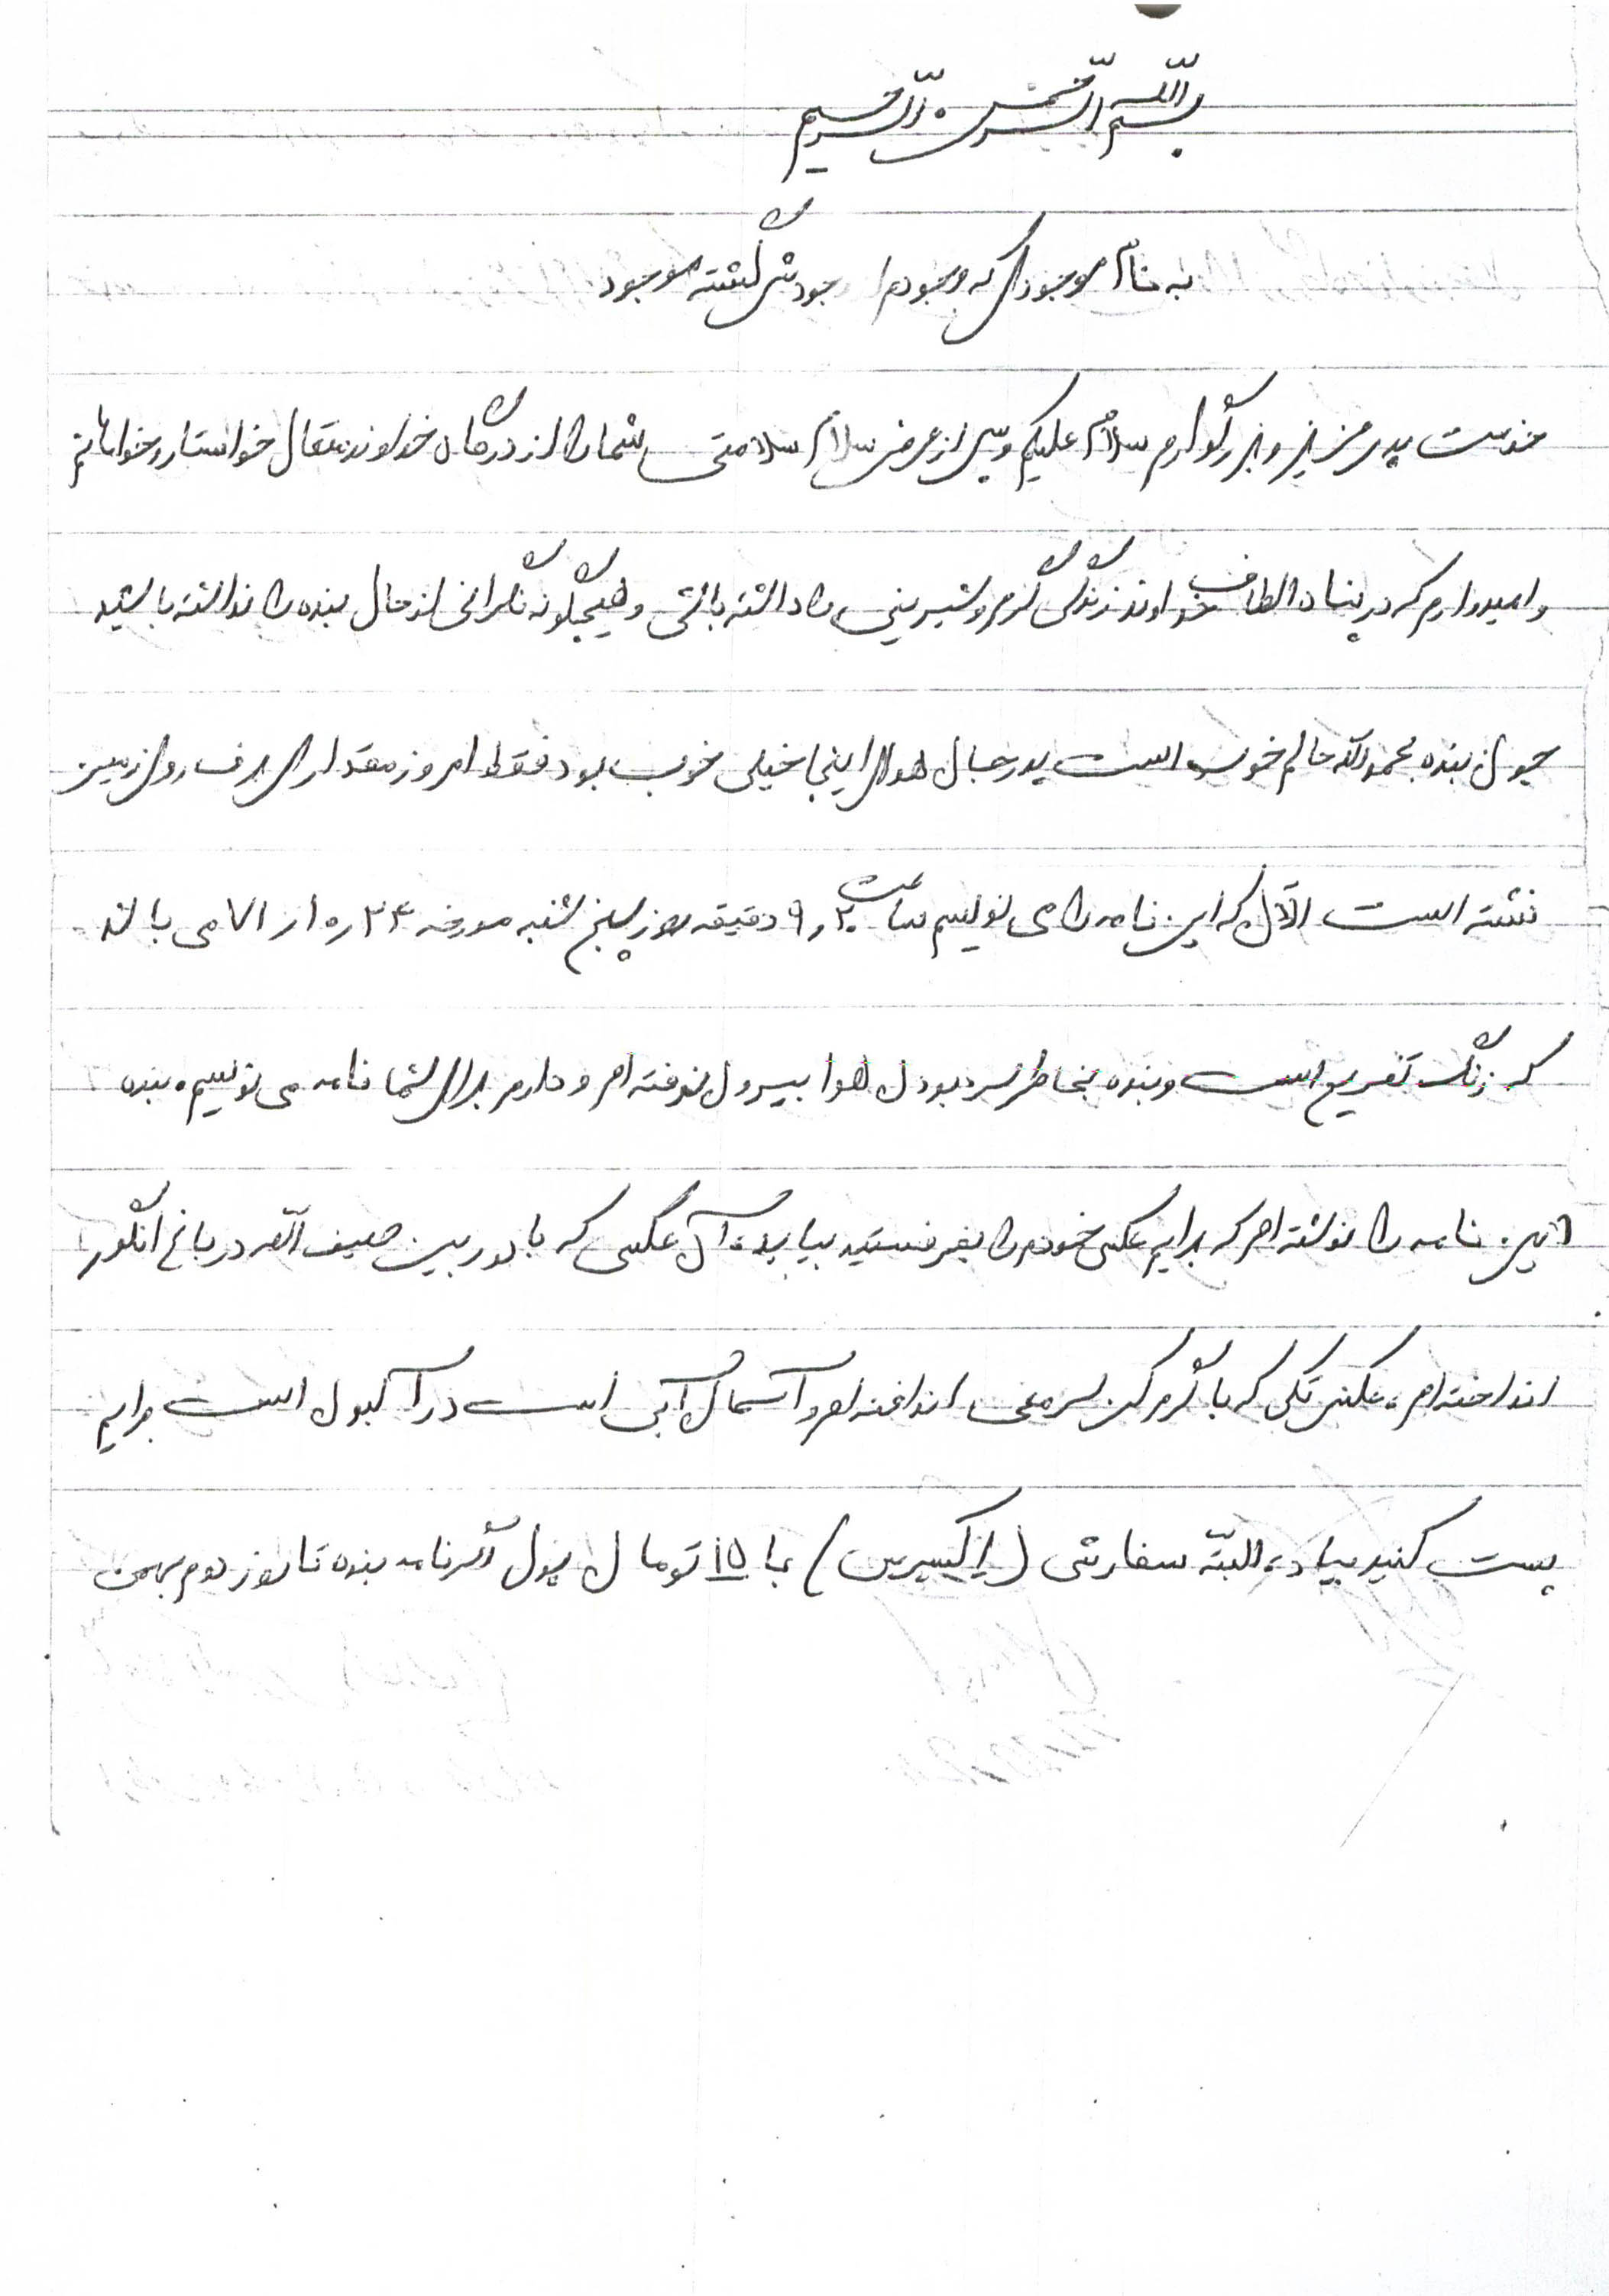 بسم الله الرّحمن الرّحیم
به نام موجودی که وجودم از وجودش گشته موجود
خدمت پدر عزیز و بزرگوارم سلام علیکم و پس از عرض سلام سلامتی شما را از درگاه خداوند متعال خواستار و خواهانم
و امیدوارم که در پناه الطاف خداوند زندگی گرم و شیرینی را داشته باشی و هیچگونه نگرانی از حال بنده را نداشته باشید
چون بنده بحمدالله حالم خوب است پدرجان هوای اینجا خیلی خوب بود فقط امروز مقداری برف روی زمین
نشسته است الآن که این نامه را می نویسم ساعت ۹٫۲۰ دقیقه روز پنج شنبه مورخه ۲۴ ر ۱۰ ر ۷۱ می باشد
که زنگ تفریح است و بنده بخاطر سرد بودن هوا بیرون نرفته ام و دارم برای شما نامه می نویسم. بنده
این نامه را نوشته ام که برایم عکس خودم را بفرستید بیاید. آن عکسی که با دوربین صیف الله در باغ انگور
انداخته ام. عکس تکی که با گرمکن سرمه‌ی انداخته ام و آسمان آبی است در آلبوم است برایم
پست کنید بیاد. البتّه سفارشی (اکسپرس) با ۱۵ تومان پول اگر نامه بنده تا روز دوم بهمن